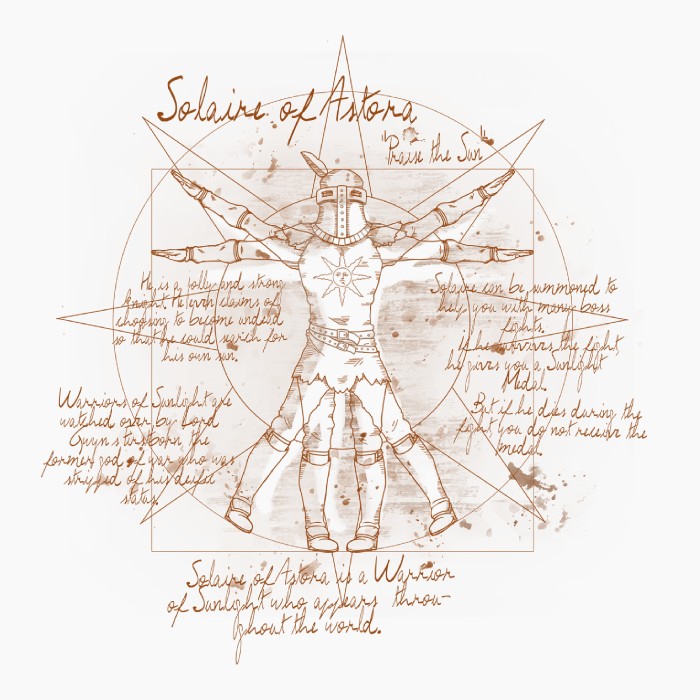 Solaire of Astora
"Praise the Sun"
He is a jolly and strong
knight. He even claims of
choosing to become undead
so that he could search for
his own sun.
Solaire can be summoned to
help you with many boss
fights.
If he survives the fight
he gives you a Sunlight
Medal.
But if he dies during the
fight you do not receive the
medal.
Warriors of Sunlight are
watched over by Lord
Gwyn's firstborn the
former god of war who was
stripped of his deific
status.
Solaire of Astora is a Warrior
of Sunlight who appears throu-
ghout the world.